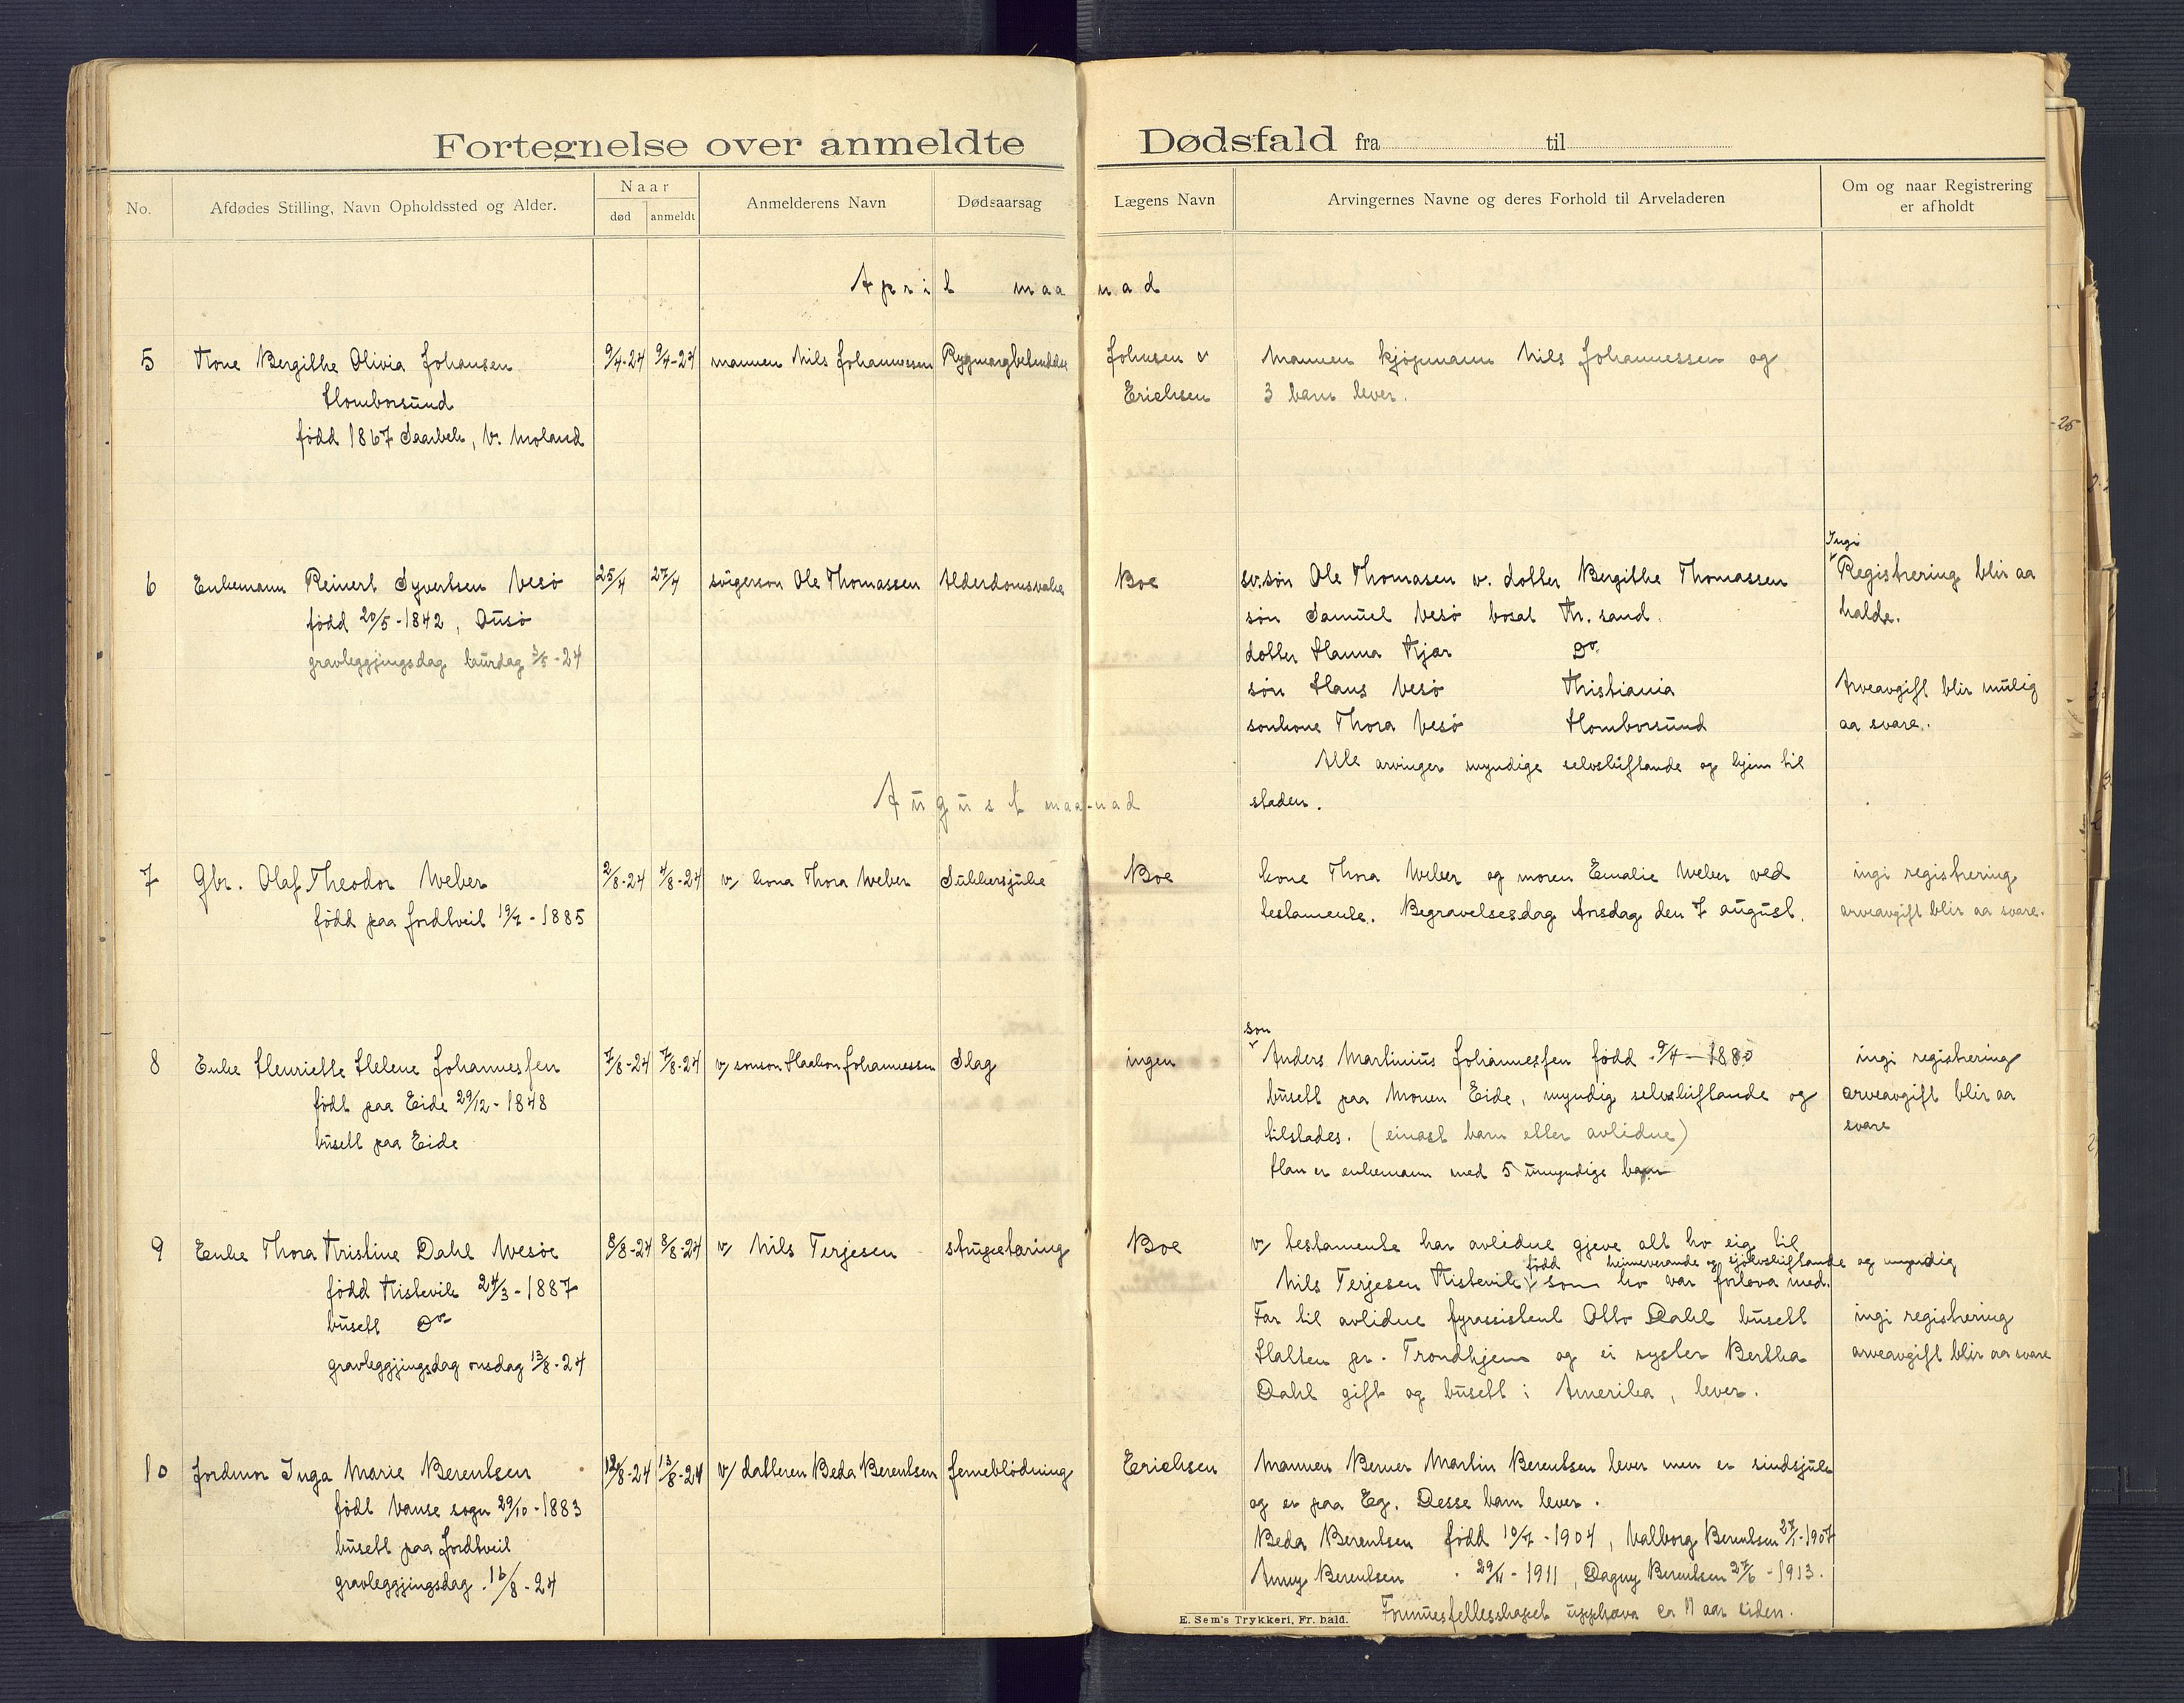 Fortegnelse over anmeldte Dødsfald fra til
No. Afdødes Stilling, Navn Opholdssted og Alder. Naar død anmeldt Anmelderens Navn Dødsaarsag Lægens Navn Arvingernes Navne og deres Forhold til Arveladeren Om og naar Registrering er afholdt
April maanad
5 Kone Bergithe Olivia Johansen 9/4-24 9/4-24 mannen Nils Johannessen Johnsen & Mannen kjøpmann Nils Johannessen og
Homborsund Erichsen 3 barn lever.
född 1867 V. Moland
6 Enkemann Reinert Syvertsen Vesö 25/4 27/4 svigerson Ole Thomassen Alderdomsvake Boe sv.søn Ole Thomasen v. dotter Bergithe Thomassen Ingi Registrering blir aa
född 20/5-1842, Ausö søn Samuel Vesö bosat Kr. sand. halde.
gravleggjingsdag laurdag 3/5-24 dotter Hanna Kjær Do.
søn Hans Vesö Kristiania Arveavgift blir mulig
sonkone Thora Vesö Homborsund aa svare.
Alle arvinger myndige selvskiftande og hjem til
staden.
August maanad
7 Gbr. Olaf Theodor Weber 2/8-24 4/8-24 v/ kona Thora Weber Sukkersjuke Boe kone Thora Weber og moren Emalie Weber ved ingi registrering
född paa Jordtveit 19/7-1885 testamente. Begravelsesdag torsdag den 7 august. arveavgift blir aa svare.
8 Enke Henriette Helene Johannesfen 7/8-24 7/8-24 v/ sonson Haakon Johannessen Slag ingen son Anders Martinius Johannesfen född 9/4-1880 ingi registrering
födt paa Eide 29/12-1848 busett paa Moen Eide, myndig selvskiftande og arveavgift blir aa
busett paa Eide tilstades. (einast barn etter avlidne) svare
Han er enkemann med 5 umyndige barn
9 Enke Thora Kristine Dahl Vesöe 8/8-24 8/8-24 v/ Nils Terjesen Boe v/ testamente har avlidne gjeve alt ho eig til
född heimeverande og sjölvskiftande og myndig
född Kistevik 24/3-1887 Nils Terjesen Kistevik, som ho var forlova med.
busett Do Far til avlidne fyrassistent Otto Dahl busett ingi registrering
gravleggjingsdag onsdag 13/8-24 Halten pr. Trondhjem og ei syster Bertha arveavgift blir aa svare
Dahl gift og busett i Amerika, lever.
10 Jordmor Inga Marie Berentsen 12/8-24 13/8-24 v/ datteren Beda Berentsen Erichsen Mannen Berner Martin Berentsen lever men er sindsjuk
födt Vanse sogn 29/10-1883 og er paa Eg. Desse barn lever.
busett paa Jordtveit Beda Berentsen född 10/7-1904, Valborg Berentsen 27/1-1907
gravleggjingsdag 16/8-24 Anny Berentsen 29/11-1911, Dagny Berentsen 27/6-1913.
Formuesfellesskapet upphæva ca 11 aar siden.
E. Sem's Trykkeri, Fr. hald.